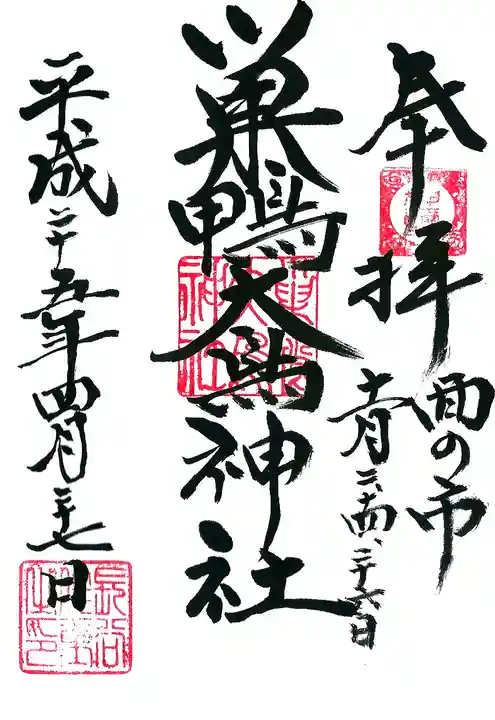 奉拝
酉の市
十一月二、十四、二十六日
巣鴨大鳥神社
平成二十五年四月二十七日